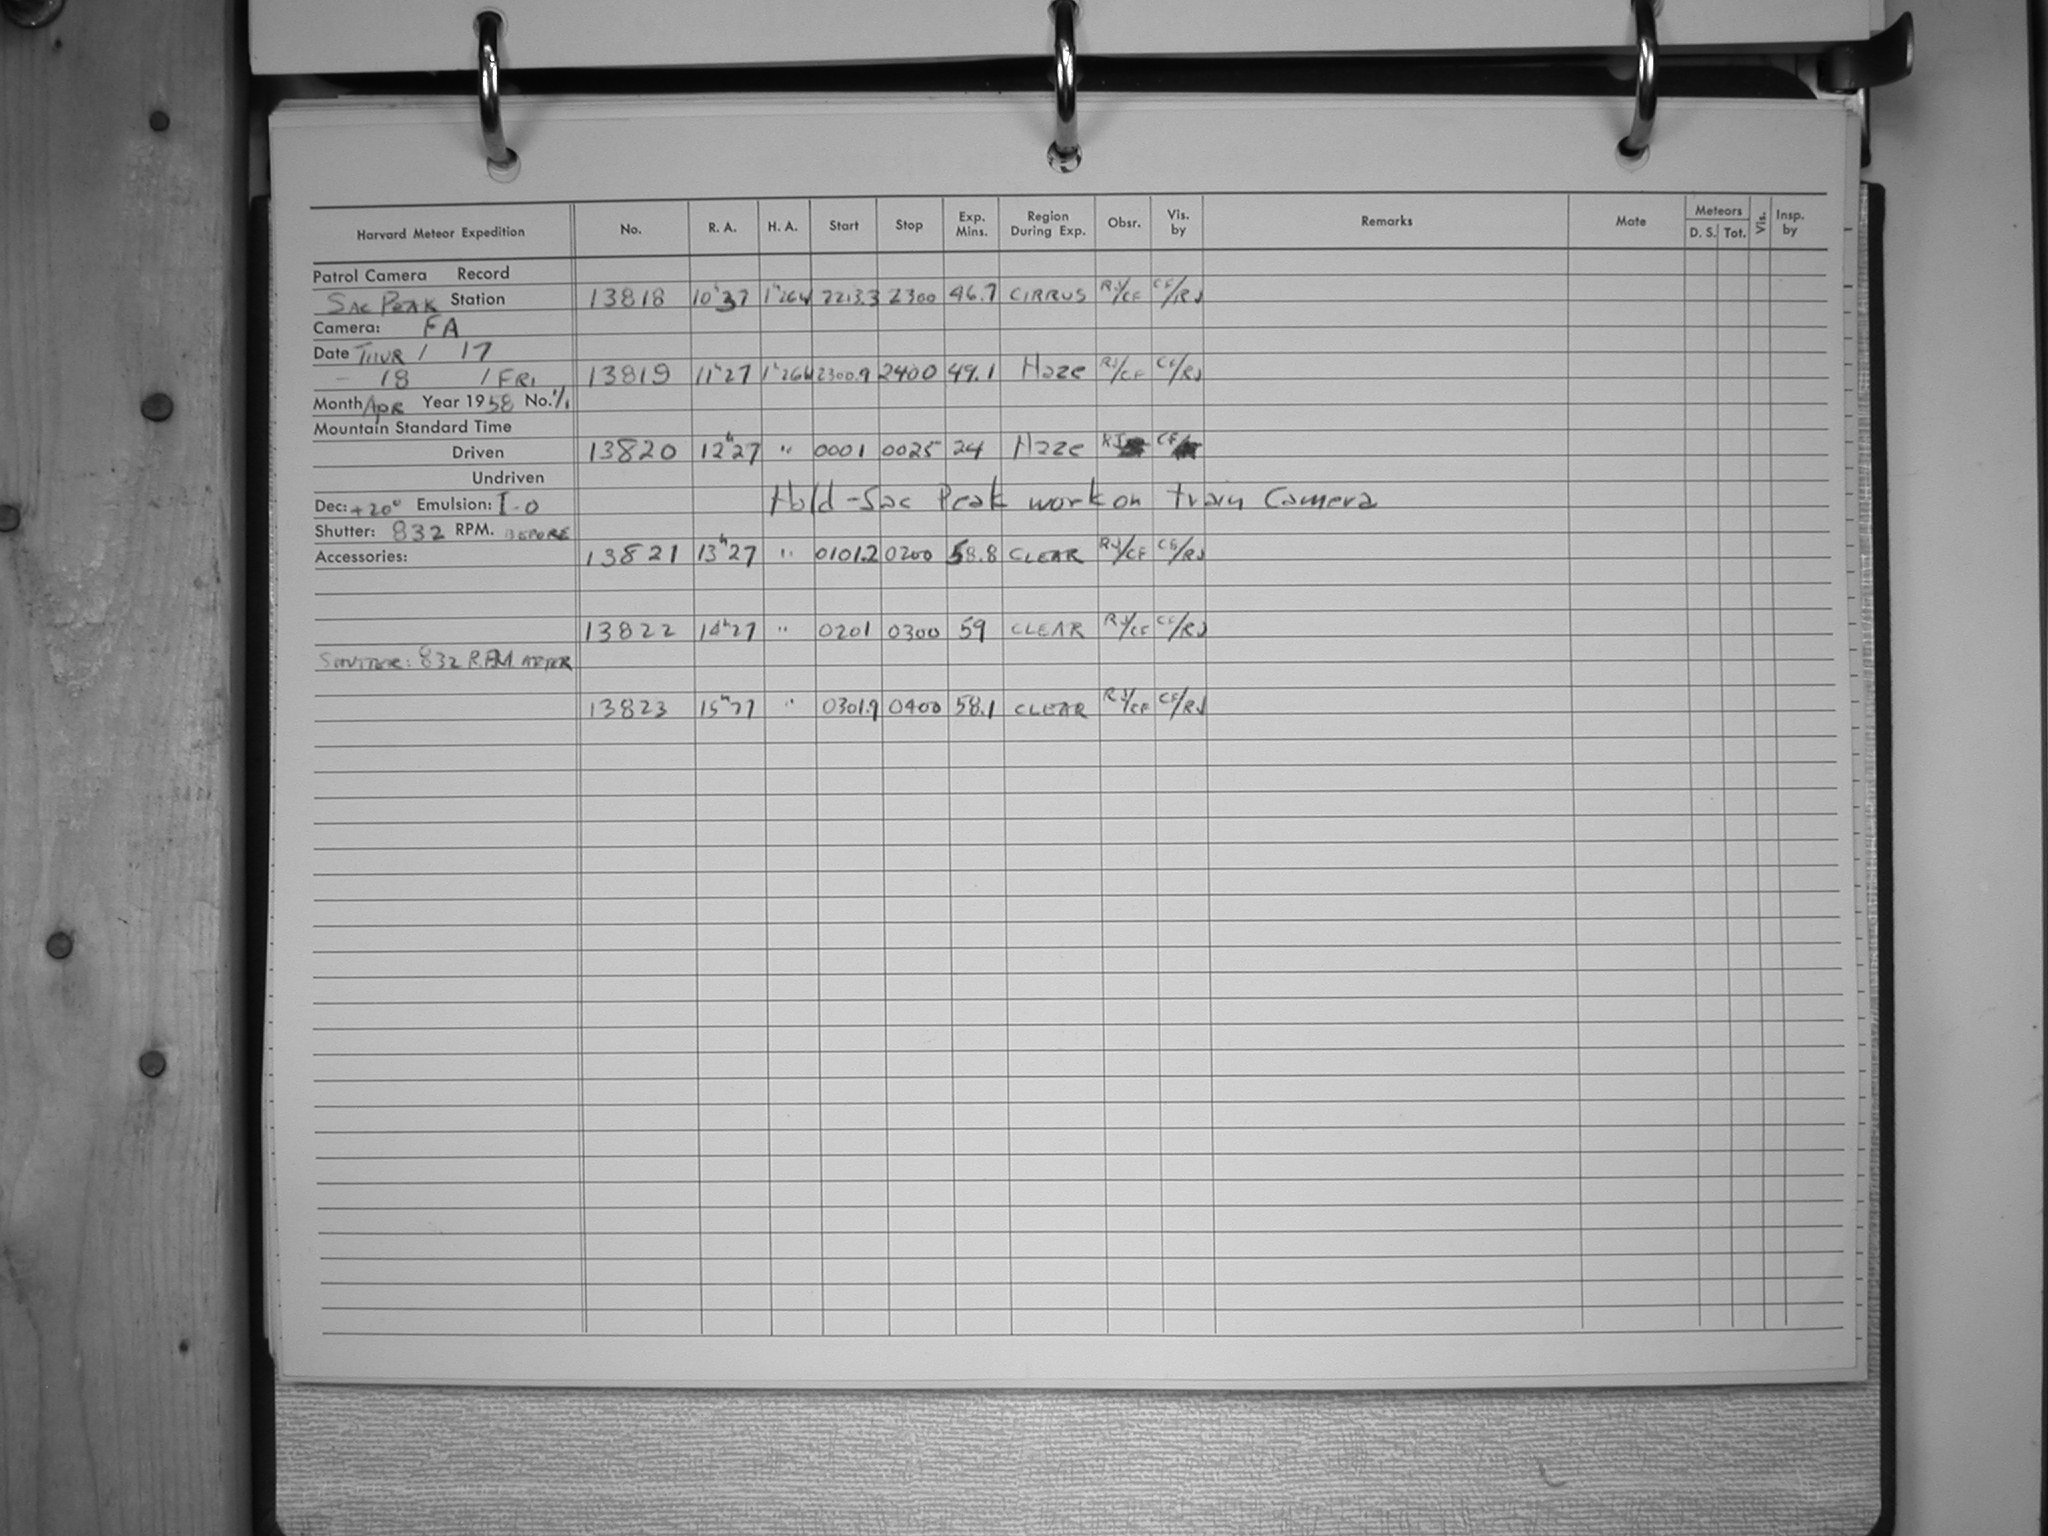 Harvard Meteor Expedition No. R. A. H. A. Start Stop Exp. Mins. Region During Exp. Obsr. Vis. by Remarks Mate Meteors D. S. Tot. Vis. Insp. by
Patrol Camera Record
SAC PEAK Station 13818 10ʰ37 1ʰ26W 2213.3 2300 46.7 CIRRUS RJ/CF CF/RJ
Camera: FA
Date THUR / 17
- 18 / FRI 13819 11ʰ27 1ʰ26W 2300.9 2400 49.1 Haze RJ/CF CF/RJ
Month Apr Year 1958 No. 1/1
Mountain Standard Time
Driven 13820 12ʰ27 " 0001 0025 24 Haze RJ CF
Undriven
Dec: +20° Emulsion: I-O Hold - Sac Peak work on train Camera
Shutter: 832 RPM. BEFORE
Accessories: 13821 13ʰ27 " 0101.2 0200 58.8 CLEAR RJ/CF CF/RJ
13822 14ʰ27 " 0201 0300 59 CLEAR RJ/CF CF/RJ
SHUTTER: 832 R.P.M. AFTER
13823 15ʰ27 " 0301.9 0400 58.1 CLEAR RJ/CF CF/RJ